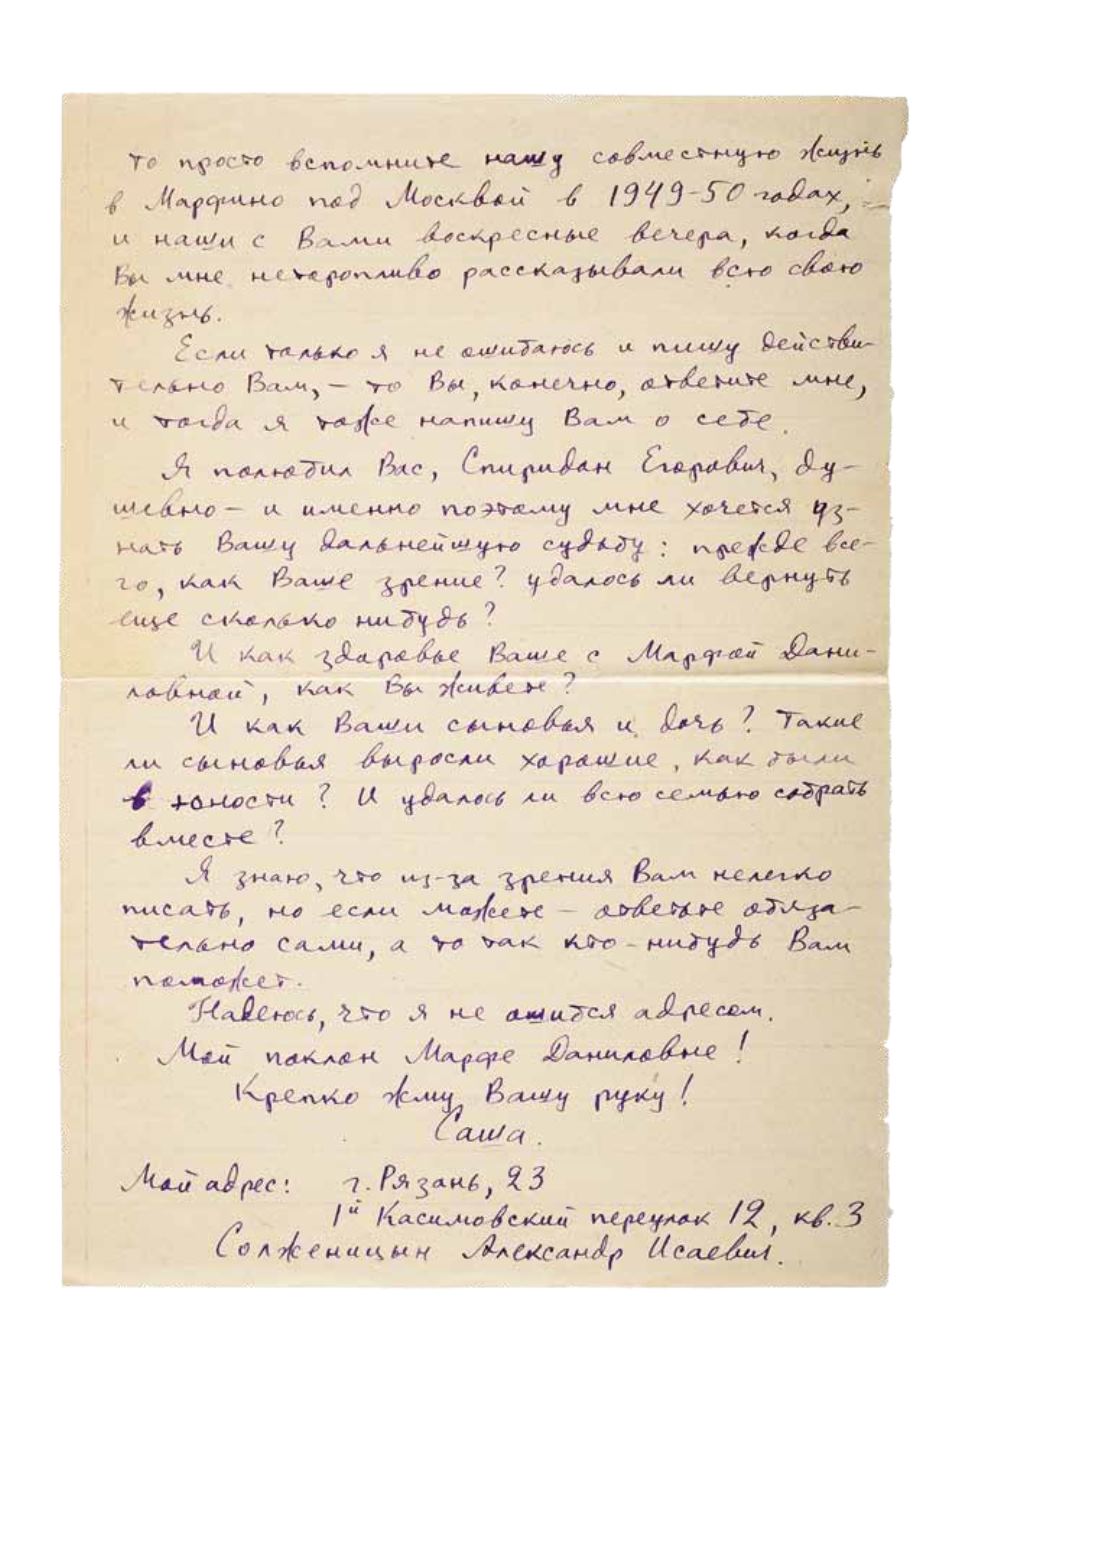 то просто вспомните нашу совместную жизнь
в Марфино под Москвой в 1949-50 годах,
и наши с Вами воскресные вечера, когда
Вы мне неторопливо рассказывали всю свою
жизнь.
Если только я не ошибаюсь и пишу действи-
тельно Вам, — то Вы, конечно, ответите мне,
и тогда я тоже напишу Вам о себе.
Я полюбил Вас, Спиридон Егорович, ду-
шевно — и именно поэтому мне хочется уз-
нать Вашу дальнейшую судьбу: прежде все-
го, как Ваше зрение? удалось ли вернуть
еще сколько нибудь?
И как здоровье Ваше с Марфой Дани-
ловной, как Вы живете?
И как Ваши сыновья и дочь? Такие
ли сыновья выросли хорошие, как были
в юности? И удалось ли всю семью собрать
вместе?
Я знаю, что из-за зрения Вам нелегко
писать, но если можете — ответьте обяза-
тельно сами, а то так кто-нибудь Вам
поможет.
Надеюсь, что я не ошибся адресом.
Мой поклон Марфе Даниловне!
Крепко жму Вашу руку!
Саша.
Мой адрес: г. Рязань, 23
1й Касимовский переулок 12, кв. 3
Солженицын Александр Исаевич.